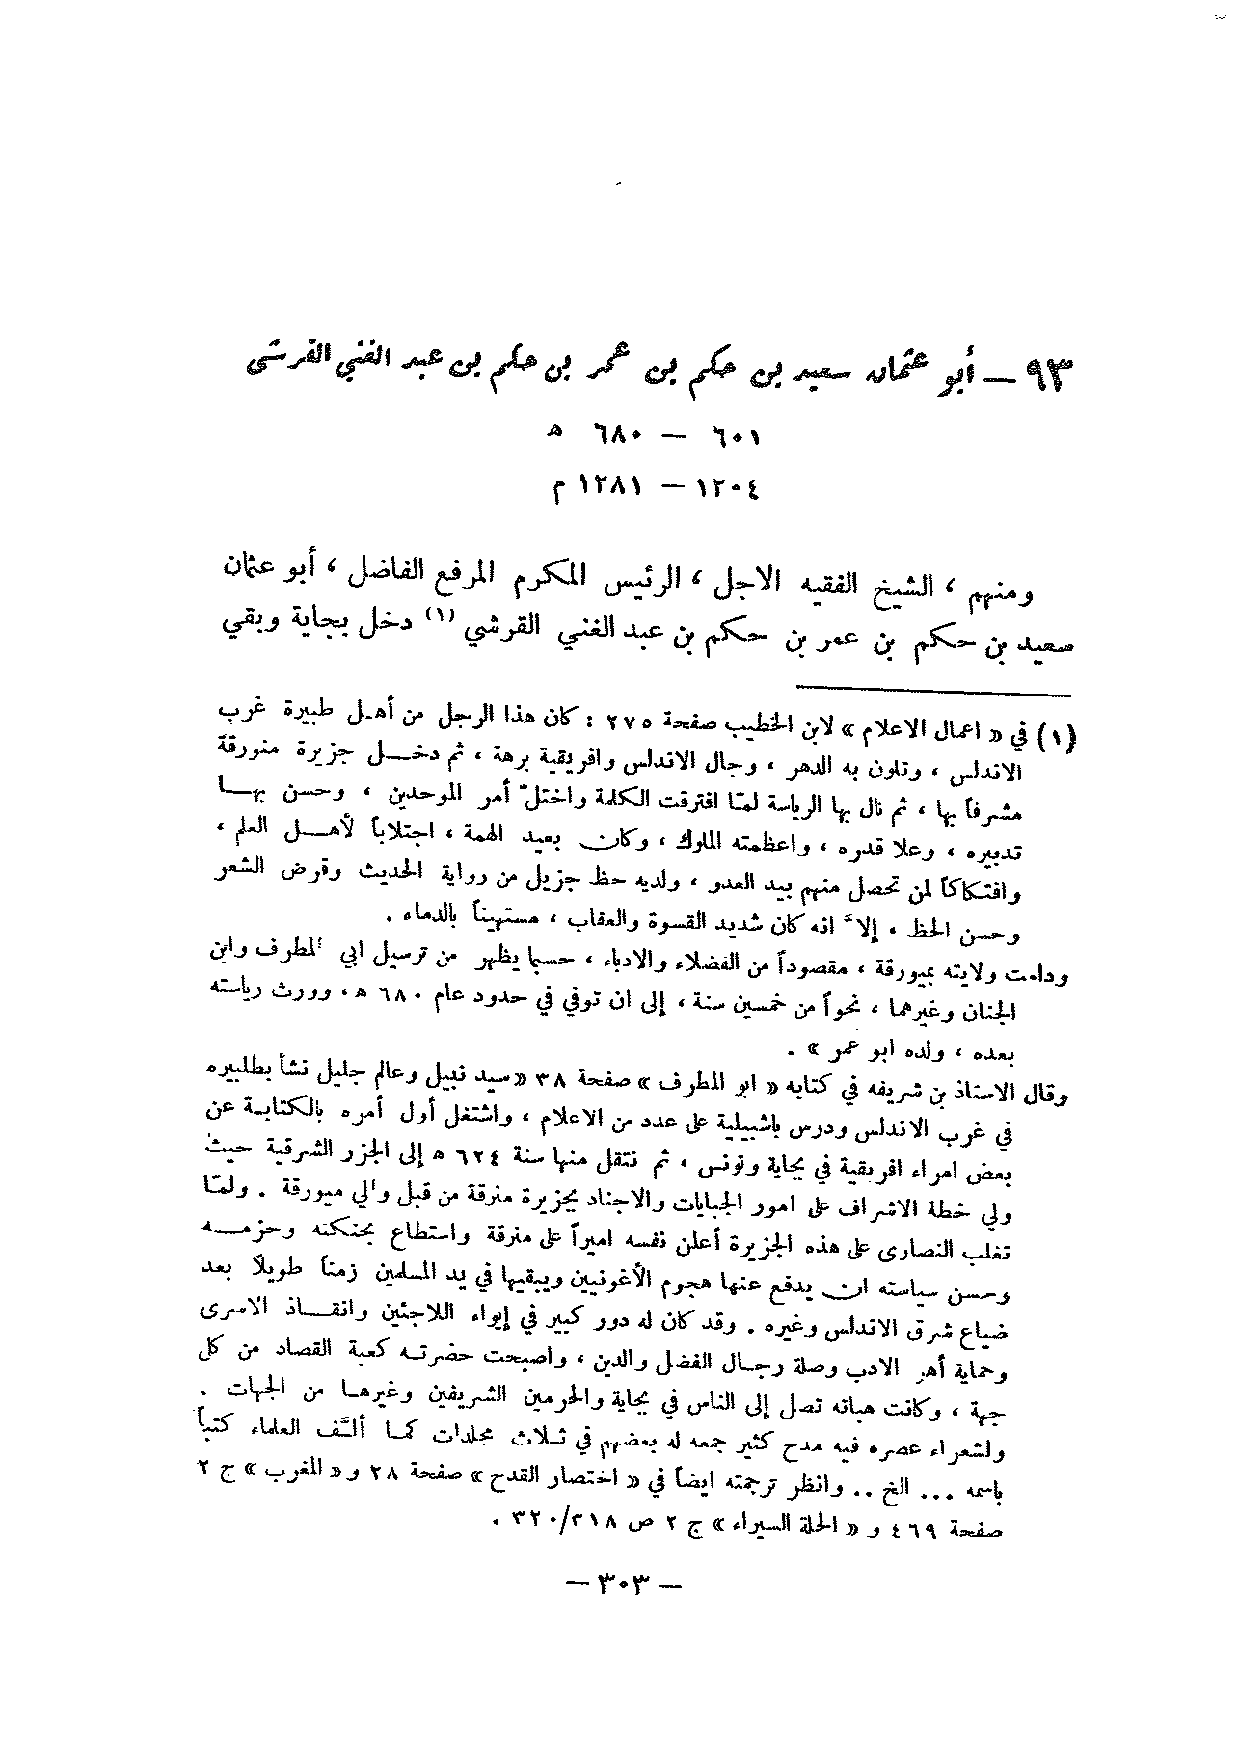 ٩٣ — أبو عثمان سعيد بن حكم بن عمر بن حكم بن عبد الغني القرشي
٦٠١ — ٦٨٠ هـ
١٢٠٤ — ١٢٨١ م
ومنهم ، الشيخ الفقيه الاجل ، الرئيس المكرم المرفع الفاضل ، أبو عثمان
سعيد بن حكم بن عمر بن حكم بن عبد الغني القرشي (١) دخل بجاية وبقي
(١) في « اعمال الاعلام » لابن الخطيب صفحة ٢٧٥ : كان هذا الرجل من أهل طبيرة غرب
الاندلس ، وتلون به الدهر ، وجال الاندلس وافريقية برهة ، ثم دخل جزيرة منورقة
مشرفاً بها ، ثم نال بها الرياسة لمّا افترقت الكلمة واختلّ أمر الموحدين ، وحسن بها
تدبيره ، وعلا قدره ، واعظمته الملوك ، وكان بعيد الهمة ، اجتلاباً لأهل العلم ،
وافتكاكاً لمن تحصل منهم بيد العدو ، ولديه حظ جزيل من رواية الحديث وقرض الشعر
وحسن الخط ، إلاّ انه كان شديد القسوة والعقاب ، مستهيناً بالدماء .
ودامت ولايته بميورقة ، مقصوداً من الفضلاء والادباء ، حسبما يظهر من ترسيل ابي المطرف وابن
الجنان وغيرهما ، نحواً من خمسين سنة ، إلى ان توفي في حدود عام ٦٨٠ هـ ، وورث رياسته
بعده ، ولده ابو عمر » .
وقال الاستاذ بن شريفه في كتابه « ابو المطرف » صفحة ٣٨ « سيد نبيل وعالم جليل نشأ بطلبيره
في غرب الاندلس ودرس باشبيلية على عدد من الاعلام ، واشتغل أول أمره بالكتابة عن
بعض امراء افريقية في بجاية وتونس ، ثم نتقل منها سنة ٦٢٤ هـ إلى الجزر الشرقية حيث
ولي خطة الاشراف على امور الجبايات والاجناد بجزيرة منرقة من قبل والي ميورقة . ولمّا
تغلب النصارى على هذه الجزيرة أعلن نفسه اميراً على منرقة واستطاع بحنكته وحزمه
وحسن سياسته ان يدفع عنها هجوم الأغونيين ويبقيها في يد المسلمين زمناً طويلاً بعد
ضياع شرق الاندلس وغيره . وقد كان له دور كبير في إيواء اللاجئين وانقاذ الاسرى
وحماية أهر الادب وصلة رجال الفضل والدين ، واصبحت حضرته كعبة القصاد من كل
جهة ، وكانت هباته تصل إلى الناس في بجاية والحرمين الشريفين وغيرها من الجهات .
ولشعراء عصره فيه مدح كثير جمعه له بعضهم في ثلاث مجلدات كما ألّف العلماء كتباً
باسمه ... الخ .. وانظر ترجمته ايضاً في « اختصار القدح » صفحة ٢٨ و « المغرب » ج ٢
صفحة ٤٦٩ و « الحلة السيراء » ج ٢ ص ٣١٨/٣٢٠ .
— ٣٠٣ —